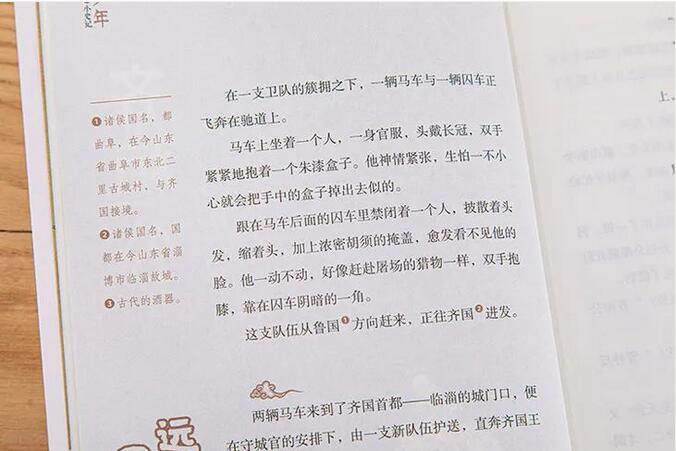 年
小史记
❶诸侯国名，都
曲阜，在今山东
省曲阜市东北二
里古城村，与齐
国接境。
❷诸侯国名，国
都在今山东省淄
博市临淄故城。
❸古代的酒器。
在一支卫队的簇拥之下，一辆马车与一辆囚车正
飞奔在驰道上。
马车上坐着一个人，一身官服，头戴长冠，双手
紧紧地抱着一个朱漆盒子。他神情紧张，生怕一不小
心就会把手中的盒子掉出去似的。
跟在马车后面的囚车里禁闭着一个人，披散着头
发，缩着头，加上浓密胡须的掩盖，愈发看不见他的
脸。他一动不动，好像赶赴屠场的猎物一样，双手抱
膝，靠在囚车阴暗的一角。
这支队伍从鲁国❶方向赶来，正往齐国❷进发。
两辆马车来到了齐国首都——临淄的城门口，便
在守城官的安排下，由一支新队伍护送，直奔齐国王
远